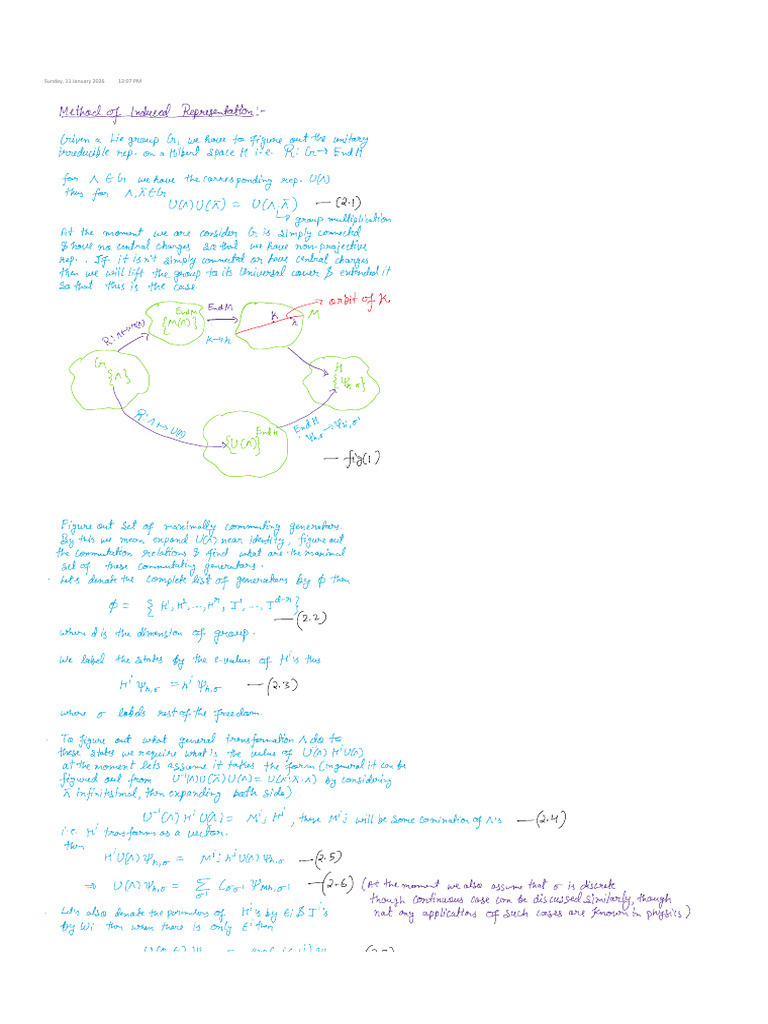 Sunday, 11 January 2026 12:07 PM
Method of Induced Representation:-
Given a Lie group G, we have to figure out the unitary
irreducible rep. on a Hilbert Space H i.e. R: G → End H
for Λ ∈ G we have the corresponding rep. U(Λ)
thus for Λ, Λ̄ ∈ G
U(Λ)U(Λ̄) = U(Λ.Λ̄) — (2.1)
↳ group multiplication
At the moment we are consider G is simply connected
& have no central charges so that we have non-projective
rep.. If it isn't simply connected or have central charges
then we will lift the group to its Universal cover & extended it
so that this is the case.
orbit of K
End M
End M
{M(Λ)}
K
h
M
K→h
R: Λ→M(Λ)
G
{Λ}
H
{Ψh,σ}
R: Λ↦U(Λ)
{U(Λ)}
End H
End H
— fig(1)
Figure out set of maximally commuting generators.
By this we mean expand U(Λ) near identity, figure out
the commutation relations & find what are the maximal
set of these commutating generators.
· Let's denote the complete list of generators by ϕ then
ϕ = { H¹, H², ..., Hʳ, J¹, ..., Jᵈ⁻ʳ}
— (2.2)
where d is the dimension of group.
We label the states by the e-values of Hⁱ's thus
Hⁱ Ψh,σ = hⁱ Ψh,σ — (2.3)
where σ labels rest of the freedom.
· To figure out what general transformation Λ do to
these states we require what is the value of U⁻¹(Λ) Hⁱ U(Λ)
at the moment lets assume it takes the form (in general it can be
figured out from U⁻¹(Λ)U(Λ̄)U(Λ) = U(Λ⁻¹.Λ̄.Λ) by considering
Λ̄ infinitsimal, then expanding both side)
U⁻¹(Λ) Hⁱ U(Λ) = Mⁱⱼ Hʲ, these Mⁱⱼ will be some comination of Λ's — (2.4)
i.e. Hⁱ transforms as a vector.
then
Hⁱ U(Λ) Ψh,σ = Mⁱⱼ hʲ U(Λ) Ψh,σ — (2.5)
⇒ U(Λ) Ψh,σ = Σσ' Cσσ' ΨMh,σ' — (2.6) (At the moment we also assume that σ is discrete
though continuous case can be discussed similarly, though
not any applications of such cases are known in physics)
· Let's also denote the of Hⁱ's by Ei & Jⁱ's
by Wi then when there is only Eⁱ then